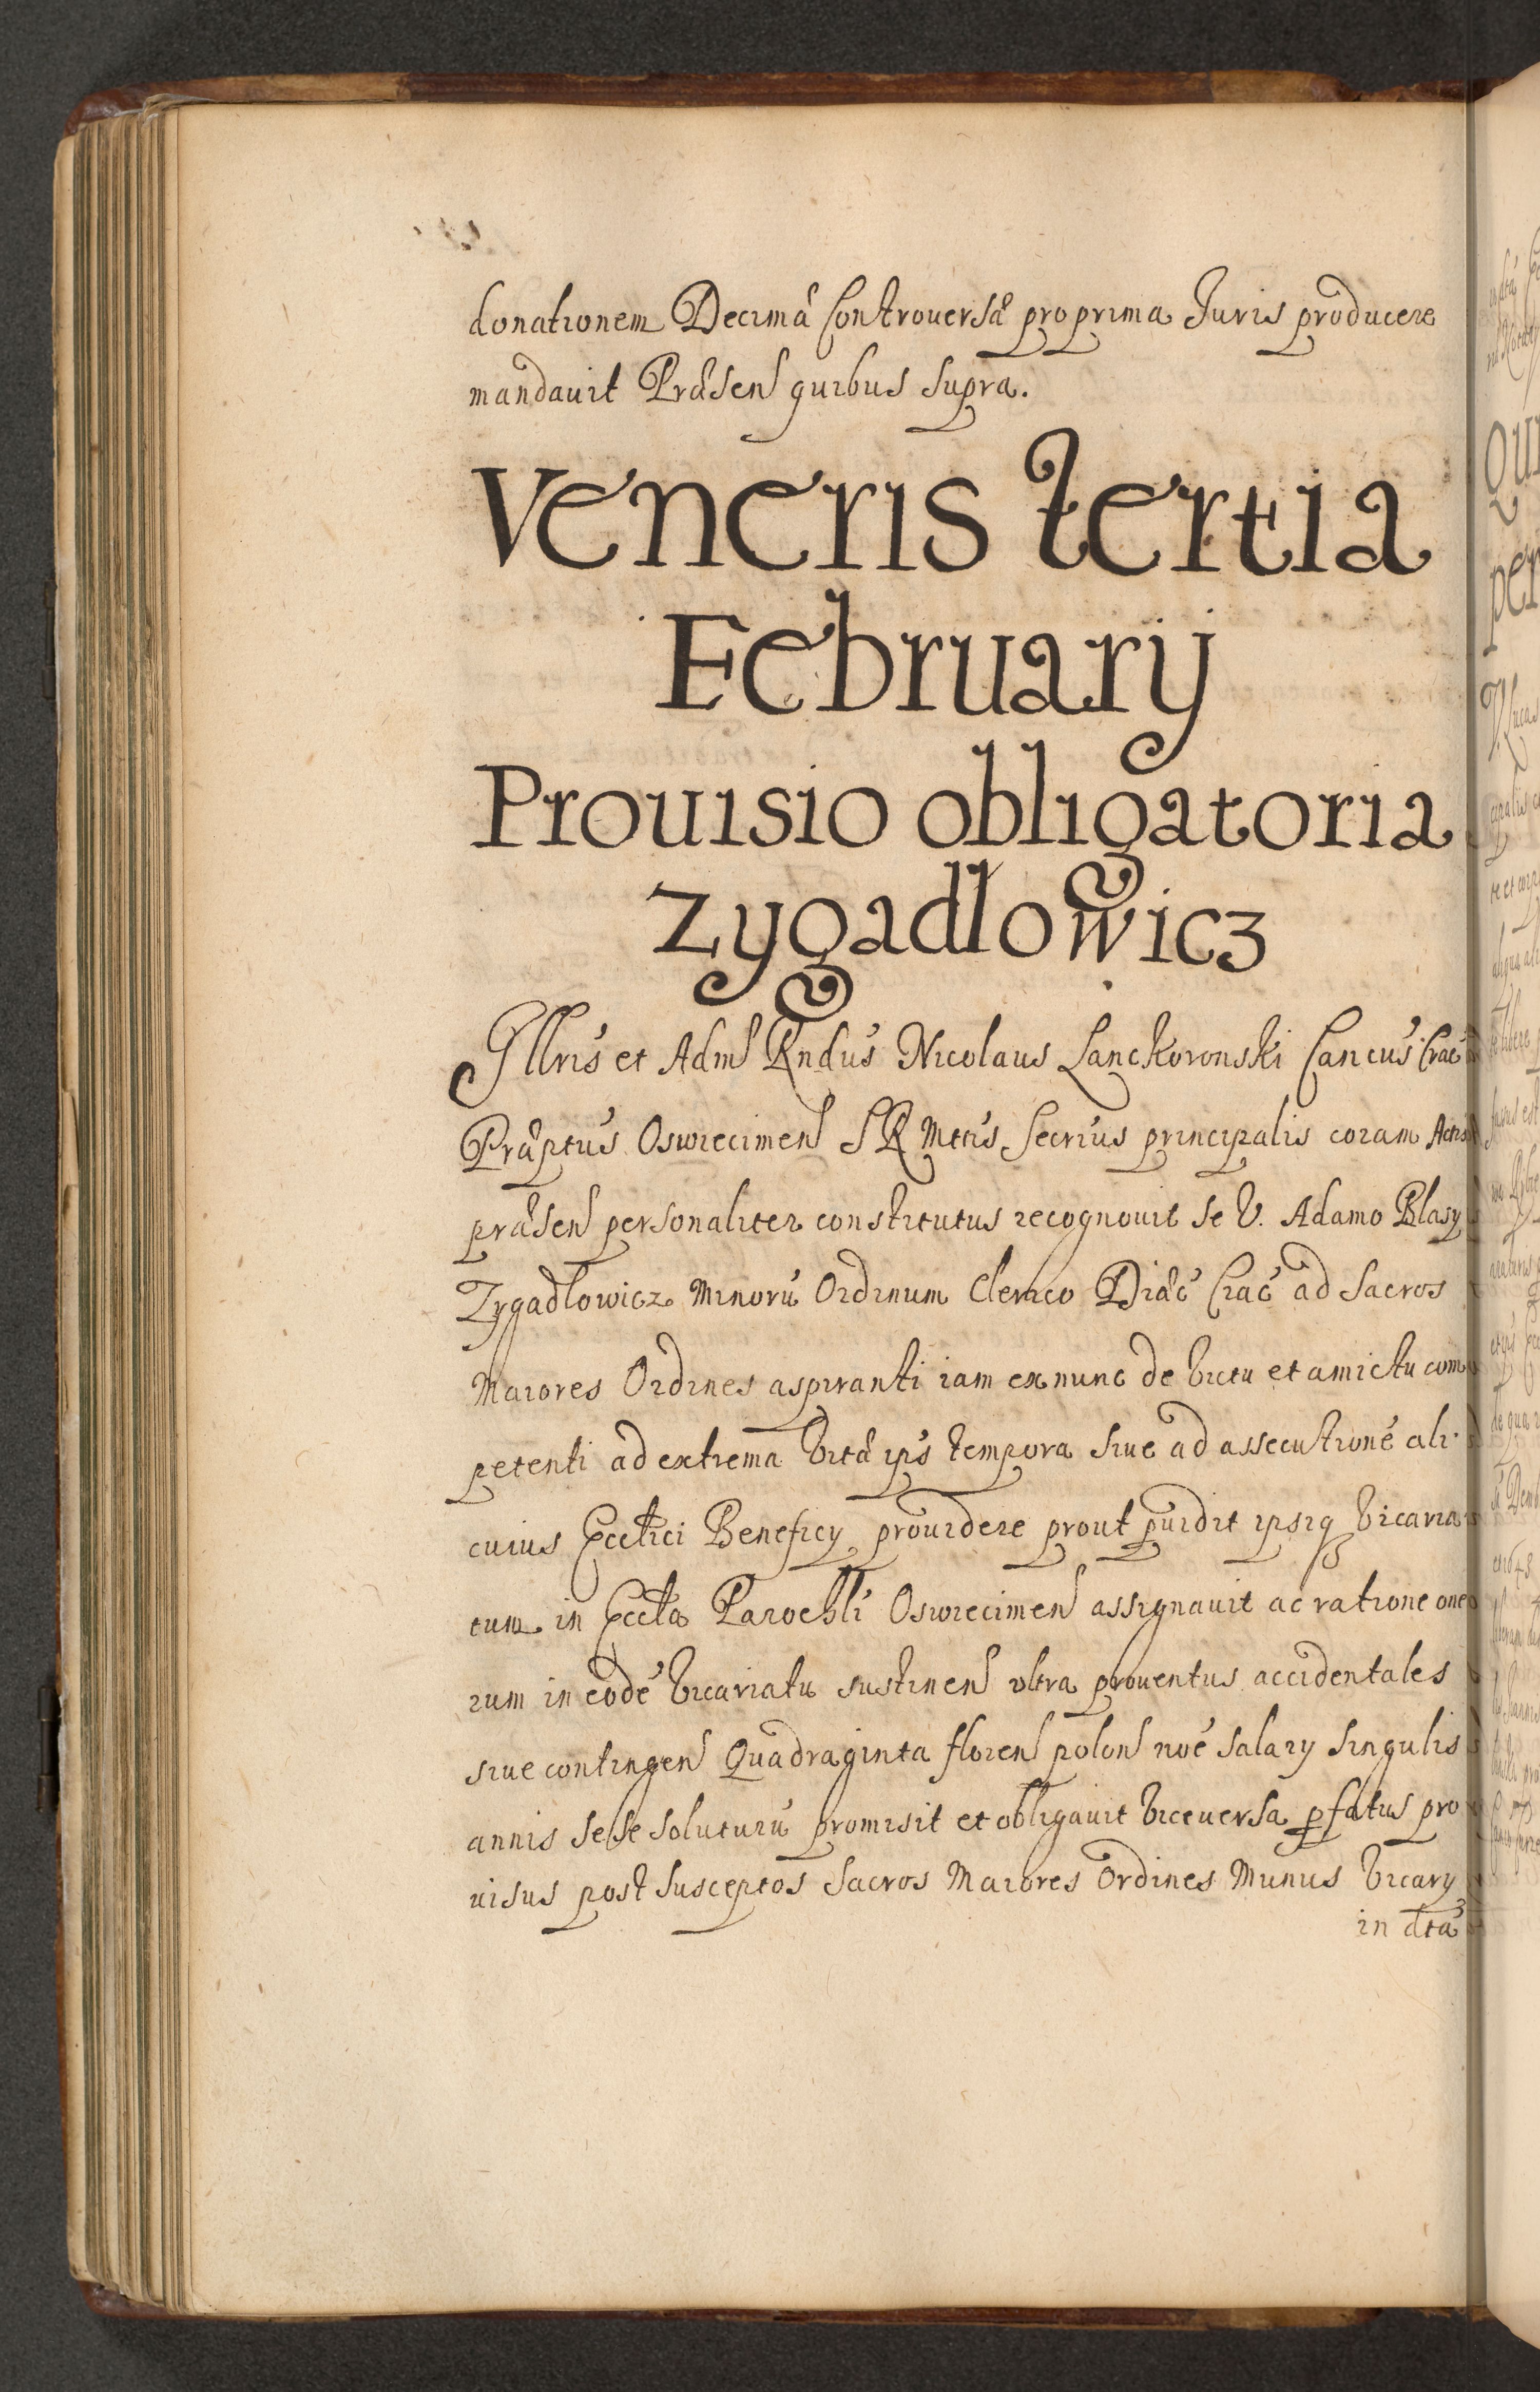 donationem Decimæ Controversæ pro prima Juris producere
mandauit Præsen quibus supra.
Veneris tertia
February
Prouisio obligatoria
Zygadłowicz
Jllris et Adm Rndus Nicolaus Lanckoronski Cancus Crac
Præptus Oswiecimen S R Mttis Secrius principalis coram Actis
præsen personaliter constitutus recognouit se V. Adamo Blasy
Zygadłowicz Minorū Ordinum Clerico Diæc Crac ad Sacros
Maiores Ordines aspiranti iam ex nunc de victu et amictu com
petenti ad extrema vitæ ips tempora siue ad assecutionē ali
cuius Eccltici Beneficy prouidere prout puidit ipsiq vicaria
tum in Eccla Parochli Oswiecimen assignauit ac ratione one
rum in eodē vicariatu sustinen vltra prouentus accidentales
siue contingen Quadraginta floren polon noē salary singulis
annis sese soluturū promisit et obligauit viceuersa pfatus pro
uisus post susceptos Sacros Maiores Ordines Munus vicary
in dta